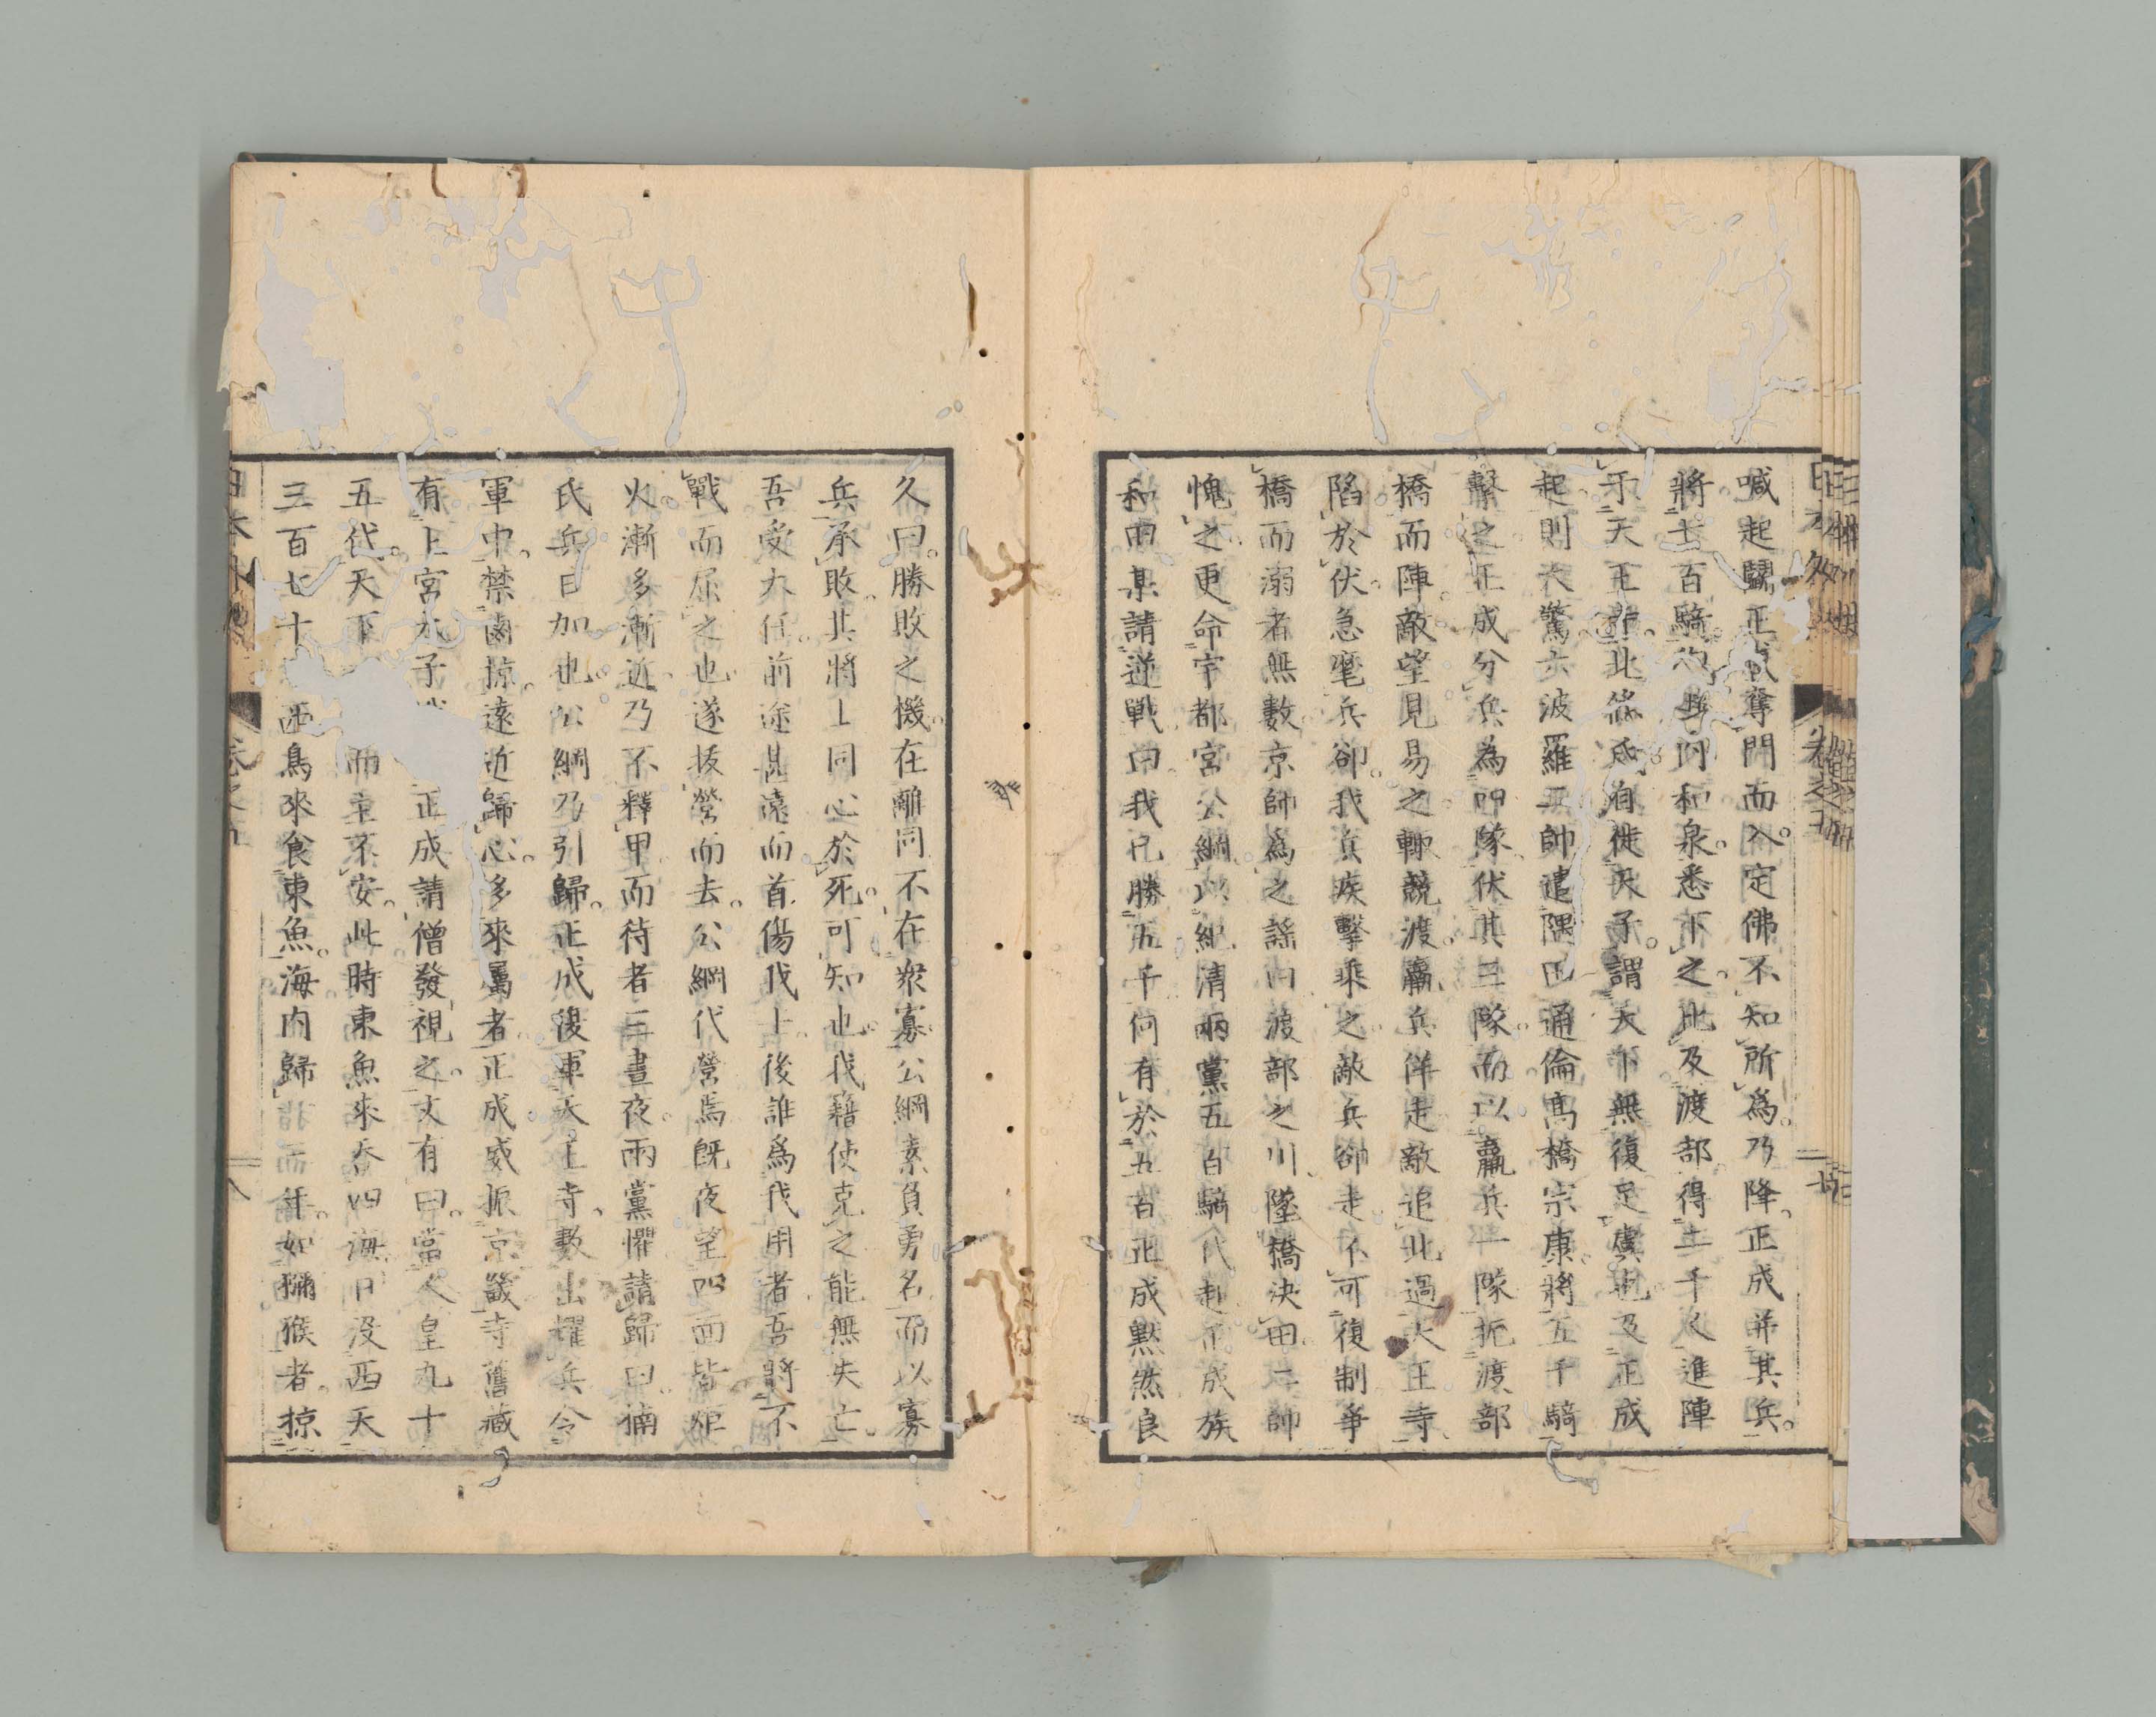 喊起驅正成奪門而入定佛不知所爲乃降正成并其兵
將士百騎徇與阿和泉悉下之比及渡部得二千人進陣
于天王寺北條氏自徙天子謂天下無復足虞也及正成
起則大驚六波羅二帥遣隅田通倫高橋宗康將五千騎
擊之正成分兵為四隊伏其三隊而以羸兵一隊扼渡部
橋而陣敵望見易之輙競渡羸兵佯走敵追北過天王寺
陷於伏急麾兵卻我兵疾擊乘之敵兵卻走不可復制爭
橋而溺者無數京師爲之謠曰渡部之川墜橋決田二帥
愧之更命宇都宮公綱以紀清兩黨五百騎代赴正成族
和田某請逆戰曰我已勝五千何有於五百正成默然良
久曰勝敗之機在離同不在衆寡公綱素負勇名而以寡
兵承敗其將士同心於死可知也我藉使克之能無失亡
吾受大任前途甚遠而首傷我士後誰爲我用者吾將不
戰而屈之也遂拔營而去公綱代營焉旣夜望四面皆炬
火漸多漸近乃不釋甲而待者三晝夜兩黨懼請歸曰楠
氏兵日加也公綱乃引歸正成復軍天王寺數出耀兵令
軍中禁鹵掠遠近歸心多來屬者正成威振京畿寺舊藏
有上宮太子正成請僧發視之文有曰當人皇九十
五代天下而主不安此時東魚來呑四海日沒西天
三百七十西鳥來食東魚海内歸一三年如獼猴者掠
日本外史
卷之五